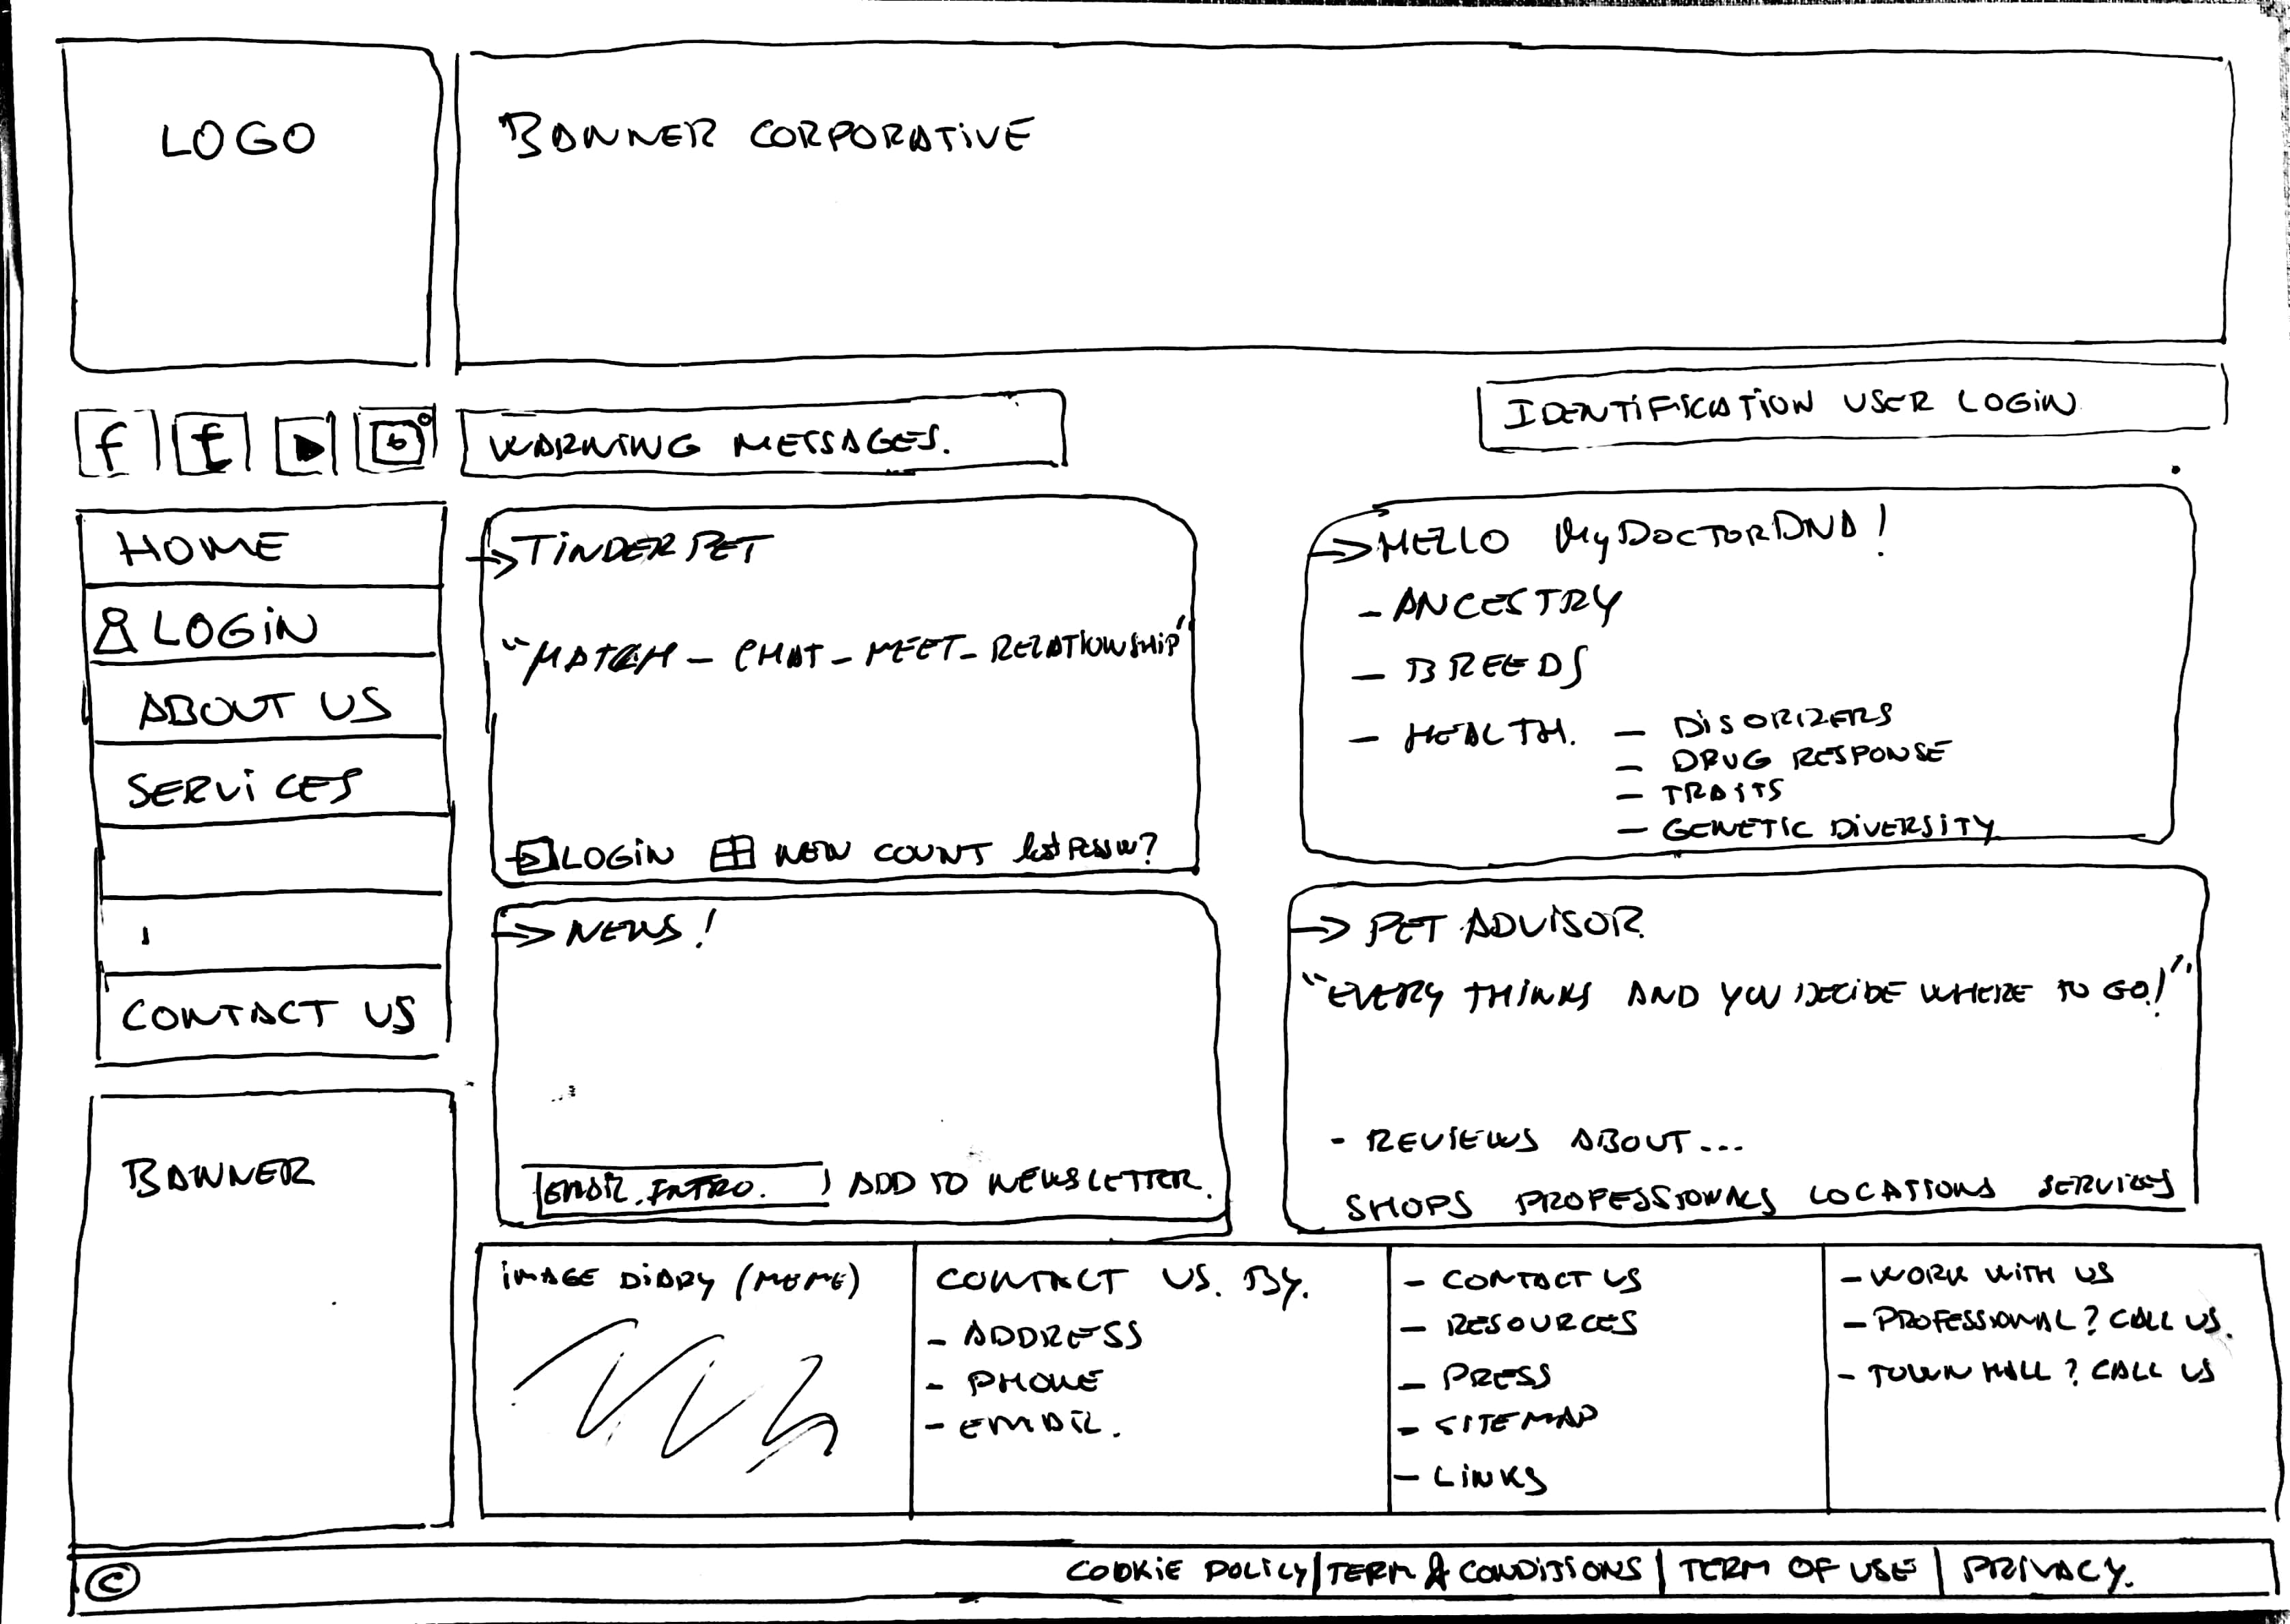 LOGO
BANNER CORPORATIVE
f t
WARNING MESSAGES.
IDENTIFICATION USER LOGIN
HOME
LOGIN
ABOUT US
SERVICES
CONTACT US
BANNER
TINDER PET
"MATCH - CHAT - MEET - RELATIONSHIP"
LOGIN NEW COUNT lost PASSW?
HELLO MyDOCTORDNA!
- ANCESTRY
- BREEDS
- HEALTH. - DISORIZERS
- DRUG RESPONSE
- TRAITS
- GENETIC DIVERSITY
NEWS!
EMAIL INTRO. ADD TO NEWSLETTER.
PET ADVISOR
"EVERY THINKS AND YOU DECIDE WHERE TO GO!"
- REVIEWS ABOUT...
SHOPS PROFESSIONALS LOCATIONS SERVICES
IMAGE DIARY (MEME)
CONTACT US. BY.
- ADDRESS
- PHONE
- EMAIL.
- CONTACT US
- RESOURCES
- PRESS
- SITEMAP
- LINKS
- WORK WITH US
- PROFESSIONAL? CALL US.
- TOWN HALL? CALL US
© COOKIE POLICY | TERM & CONDITIONS | TERM OF USE | PRIVACY.